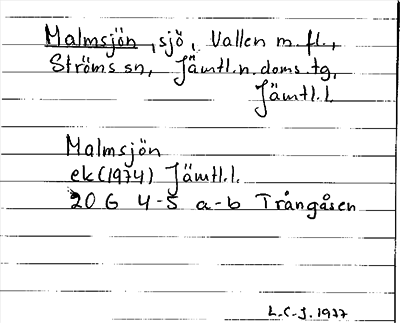 Malmsjön, sjö, Vallen m.fl.,
Ströms sn, Jämtl.n.doms.tg,
Jämtl.l.
Malmsjön
ek(1974) Jämtl.l.
20 G 4-5 a-b Trångåsen
L.C-J. 1977